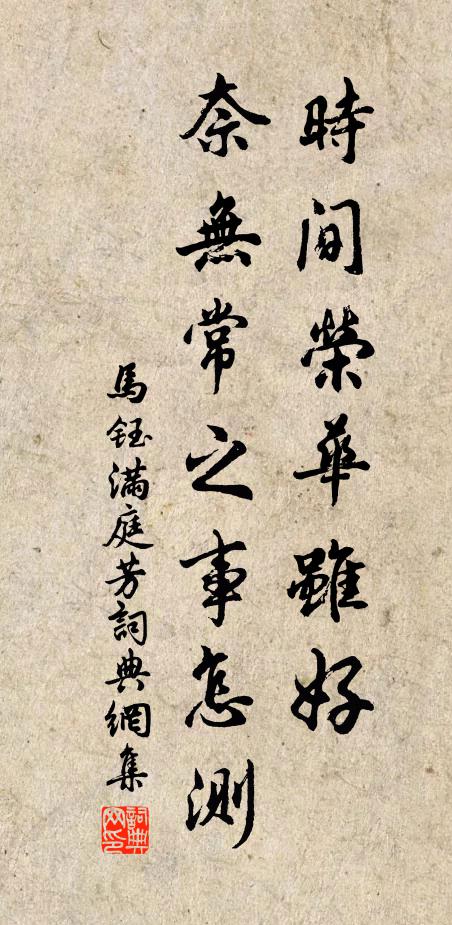 時間榮華雖好
奈無常之事怎測
馬鈺滿庭芳詞典網集
詞典网印